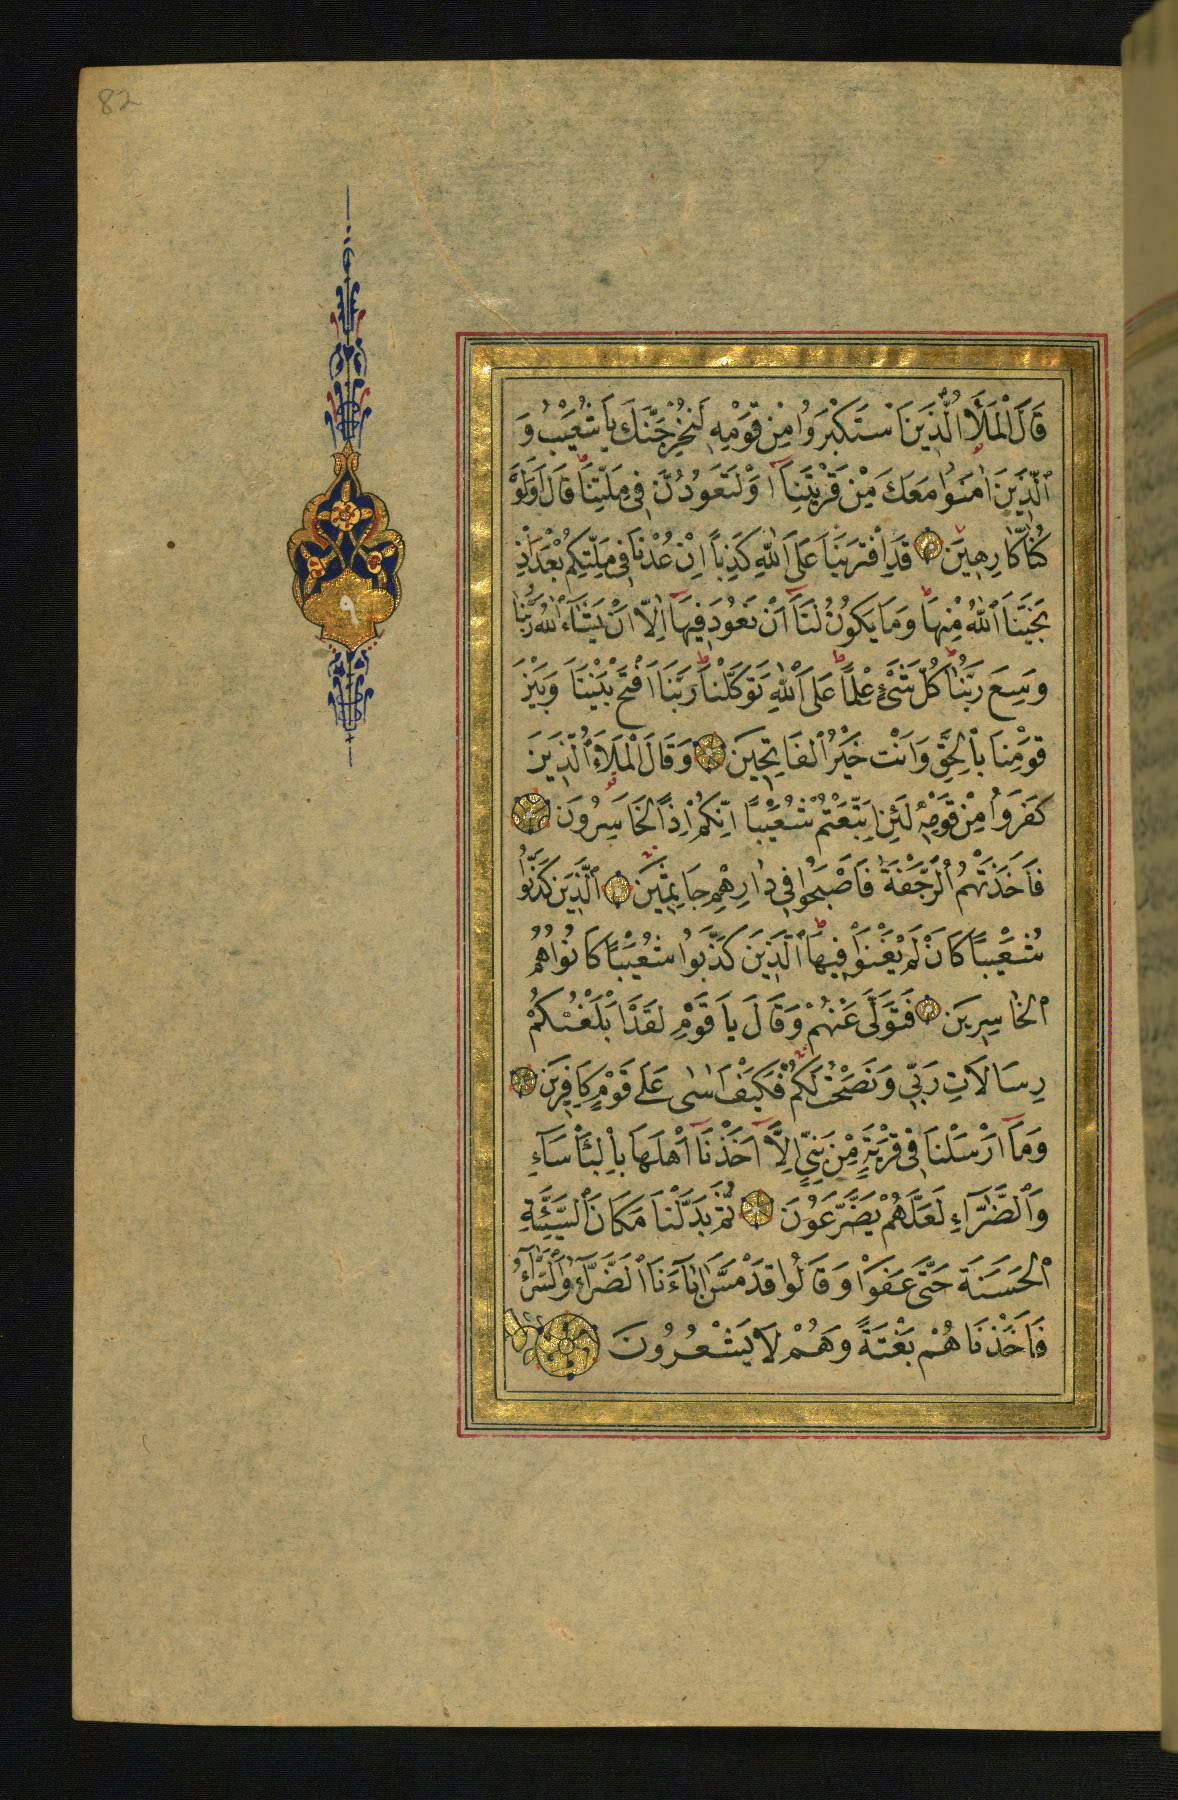 82
٩
قَالَ الْمَلَأُ الَّذِينَ اسْتَكْبَرُوا مِنْ قَوْمِهِ لَنُخْرِجَنَّكَ يَا شُعَيْبُ وَ
الَّذِينَ اٰمَنُوا مَعَكَ مِنْ قَرْيَتِنَا اَوْ لَتَعُودُنَّ فِى مِلَّتِنَا قَالَ اَوَلَوْ
كُنَّا كَارِهِينَ قَدِ افْتَرَيْنَا عَلَى اللّٰهِ كَذِبًا اِنْ عُدْنَا فِى مِلَّتِكُمْ بَعْدَ اِذْ
نَجَّيٰنَا اللّٰهُ مِنْهَا وَمَا يَكُونُ لَنَا اَنْ نَعُودَ فِيهَا اِلَّا اَنْ يَشَاءَ اللّٰهُ رَبُّنَا
وَسِعَ رَبُّنَا كُلَّ شَىْءٍ عِلْمًا عَلَى اللّٰهِ تَوَكَّلْنَا رَبَّنَا افْتَحْ بَيْنَنَا وَبَيْنَ
قَوْمِنَا بِالْحَقِّ وَاَنْتَ خَيْرُ الْفَاتِحِينَ وَقَالَ الْمَلَاُ الَّذِينَ
كَفَرُوا مِنْ قَوْمِهِ لَئِنِ اتَّبَعْتُمْ شُعَيْبًا اِنَّكُمْ اِذًا لَخَاسِرُونَ
فَاَخَذَتْهُمُ الرَّجْفَةُ فَاَصْبَحُوا فِى دَارِهِمْ جَاثِمِينَ الَّذِينَ كَذَّبُوا
شُعَيْبًا كَاَنْ لَمْ يَغْنَوْا فِيهَا الَّذِينَ كَذَّبُوا شُعَيْبًا كَانُوا هُمُ
الْخَاسِرِينَ فَتَوَلَّى عَنْهُمْ وَقَالَ يَا قَوْمِ لَقَدْ اَبْلَغْتُكُمْ
رِسَالَاتِ رَبِّى وَنَصَحْتُ لَكُمْ فَكَيْفَ اٰسٰى عَلَى قَوْمٍ كَافِرِينَ
وَمَا اَرْسَلْنَا فِى قَرْيَةٍ مِنْ نَبِىٍّ اِلَّا اَخَذْنَا اَهْلَهَا بِالْبَأْسَاءِ
وَالضَّرَّاءِ لَعَلَّهُمْ يَضَّرَّعُونَ ثُمَّ بَدَّلْنَا مَكَانَ السَّيِّئَةِ
الْحَسَنَةَ حَتَّى عَفَوْا وَقَالُوا قَدْ مَسَّ اٰبَاءَنَا الضَّرَّاءُ وَالسَّرَّاءُ
فَاَخَذْنَاهُمْ بَغْتَةً وَهُمْ لَا يَشْعُرُونَ